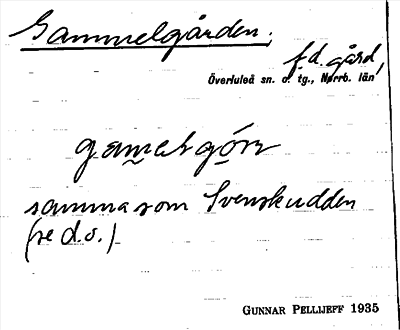 Gammelgården,
f.d. gård,
Överluleå sn. o. tg., Norrb. län
gamalgón
samma som Svenskudden
(se d.o.)
GUNNAR PELLIJEFF 1935